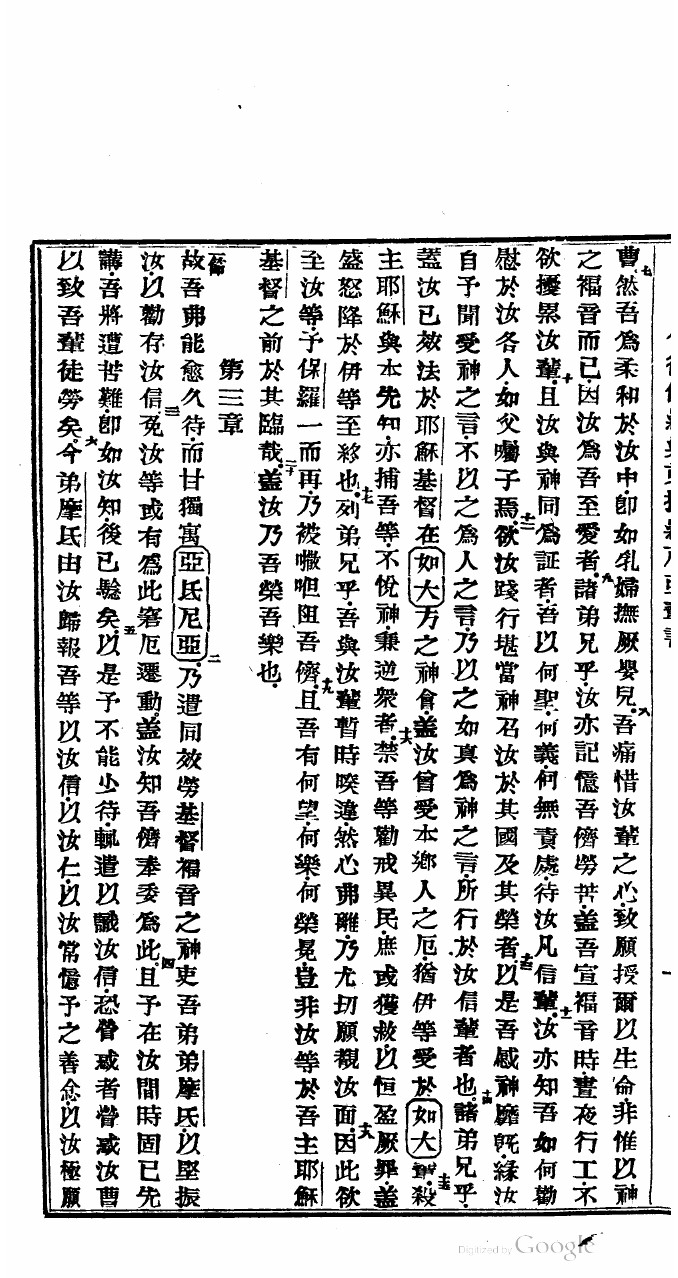 七曹然吾爲柔和於汝中卽如乳婦撫厥嬰兒八吾痛惜汝輩之心致願授爾以生命非惟以神
之福音而已因汝爲吾至愛者九諸弟兄乎汝亦記憶吾儕勞苦蓋吾宣福音時晝夜行工不
欲擾累汝輩十且汝與神同爲証者吾以何聖何義何無責處待汝凡信輩十一汝亦知吾如何勸
慰於汝各人如父囑子焉十二欲汝踐行堪當神召汝於其國及其榮者十三以是吾感神靡旣緣汝
自予聞受神之言不以之爲人之言乃以之如真爲神之言所行於汝信輩者也十四諸弟兄乎
蓋汝已效法於耶穌基督在如大方之神會蓋汝曾受本鄉人之厄猶伊等受於如大輩十五殺
主耶穌與本先知亦捕吾等不悅神秉逆衆者十六禁吾等勸戒異民庶或獲救以恒盈厥罪蓋
盛怒降於伊等至終也十七列弟兄乎吾與汝輩暫時暌違然心弗離乃尤切願覩汝面十八因此欲
至汝等予保羅一而再乃被㗫呾阻吾儕十九且吾有何望何樂何榮冕豈非汝等於吾主耶穌
基督之前於其臨哉二十蓋汝乃吾榮吾樂也
第三章
一節故吾弗能愈久待而甘獨寓亞氐尼亞二乃遣同效勞基督福音之神吏吾弟弟摩氐以堅振
汝以勸存汝信三免汝等或有爲此窘厄遷動蓋汝知吾儕奉委爲此四且予在汝間時固已先
講吾將遭苦難卽如汝知後已驗矣五以是予不能少待輒遣以識汝信恐營惑者營惑汝曹
以致吾輩徒勞矣六今弟摩氐由汝歸報吾等以汝信以汝仁以汝常憶予之善念以汝極願
Digitized by Google